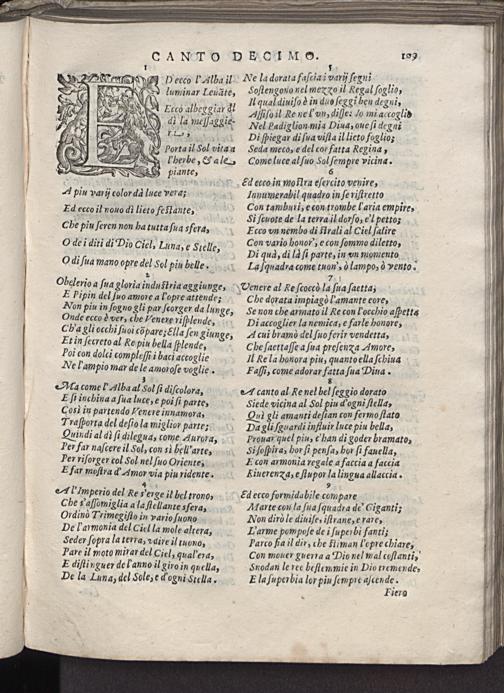 CANTO DECIMO. 109
1
E D ecco l'Alba il
luminar Levãte,
Ecco albeggiar 
dì la messaggie-
ra,
Porta il Sol vita a
l'herbe, & a le
piante,
A piu varij color dà luce vera;
Ed ecco il novo dì lieto festante,
Che piu seren non ha tutta sua sfera,
O de i diti di Dio Ciel, Luna, e Stelle,
O di sua mano opre del Sol piu belle.
2
Obelerio a sua gloria industria aggiunge,
E Pipin del suo amore a l'opre attende;
Non piu in sogno gli par scorger da lunge,
Onde ecco è ver, che Venere risplende,
Ch'a gli occhi suoi cõpare; Ella sen giunge,
Et in secreto al Re piu bella splende,
Poi con dolci complessi i baci accoglie
Ne l'ampio mar de le amorose voglie.
3
Ma come l'Alba al Sol si discolora,
E si inchina a sua luce, e poi si parte,
Così in partendo Venere innamora,
Trasporta del desio la miglior parte;
Quindi al dì si dilegua, come Aurora,
Per far nascere il Sol, con sì bell'arte,
Per risorger col Sol nel suo Oriente,
E far mostra d'Amor via piu ridente.
4
A l'Imperio del Re s'erge il bel trono,
Che s'assomiglia a la stellante sfera,
Ordinò Trimegisto in vario suono
De l'armonia del Ciel la mole altera,
Seder sopra la terra, udire il tuono,
Pare il moto mirar del Ciel, qual'era,
E distinguer de l'anno il giro in quella,
De la Luna, del Sole, e d'ogni Stella.
5
Ne la dorata fascia i varij segni
Sostengono nel mezzo il Regal soglio,
Il qual diviso è in duo seggi ben degni,
Assiso il Re ne l'un, disse: Io mi accoglio
Nel Padiglion mia Diva, ove si degni
Di spiegar di sua vista il lieto foglio;
Seda meco, e del cor fatta Regina,
Come luce al suo Sol sempre vicina.
6
Ed ecco in mostra esercito venire,
Innumerabil quadro in se ristretto
Con tamburi, e con trombe l'aria empire,
Si scuote de la terra il dorso, e'l petto;
Ecco un nembo di strali al Ciel salire
Con vario honor', e con sommo diletto,
Di quà, di là si parte, in un momento
La squadra come tuon', ò lampo, ò vento.
7
Venere al Re scoccò la sua saetta,
Che dorata impiagò l'amante core,
Se non che armato il Re con l'occhio aspetta
Di accoglier la nemica, e farle honore,
A cui bramò del suo ferir vendetta,
Che saettasse a sua presenza Amore,
Il Re la honora piu, quanto ella schiva
Fassi, come adorar fatta sua Diva.
8
A canto al Re nel bel seggio dorato
Siede vicina al Sol piu d'ogni stella,
Quì gli amanti desian con fermo stato
Da gli sguardi influir luce piu bella,
Provar quel piu, c'han di goder bramato,
Si sospira, hor si pensa, hor si favella,
E con armonia regale a faccia a faccia
Riverenza, e stupor la lingua allaccia.
9
Ed ecco formidabile compare
Marte con la sua squadra de' Giganti;
Non dirò le divise, istrane, e rare,
L'arme pompose de i superbi fanti;
Parco sia il dir, che stiman l'opre chiare,
Con mover guerra a Dio nel mal costanti,
Snodan le ree bestemmie in Dio tremende,
E la superbia lor piu sempre ascende.
Fiero